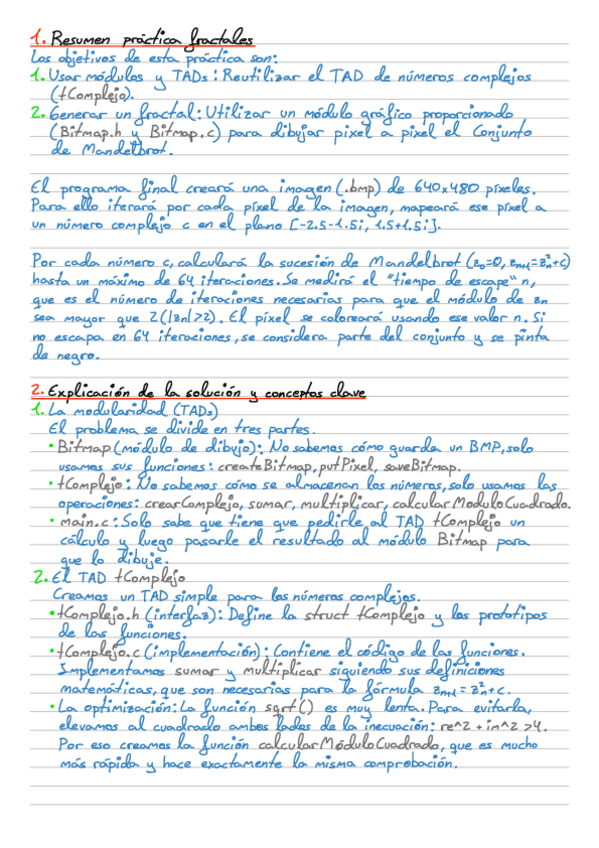 1. Resumen práctica fractales
Los objetivos de esta práctica son:
1. Usar módulos y TADs: Reutilizar el TAD de números complejos
(tComplejo).
2. Generar un fractal: Utilizar un módulo gráfico proporcionado
(Bitmap.h y Bitmap.c) para dibujar pixel a pixel el Conjunto
de Mandelbrot.
El programa final creará una imagen (.bmp) de 640x480 píxeles.
Para ello iterará por cada píxel de la imagen, mapeará ese píxel a
un número complejo c en el plano [-2.5-1.5i, 1.5+1.5i].
Por cada número c, calculará la sucesión de Mandelbrot (z₀=0, zₙ₊₁=zₙ²+c)
hasta un máximo de 64 iteraciones. Se medirá el "tiempo de escape" n,
que es el número de iteraciones necesarias para que el módulo de zn
sea mayor que 2(|zn|>2). El píxel se coloreará usando ese valor n. Si
no escapa en 64 iteraciones, se considera parte del conjunto y se pinta
de negro.
2. Explicación de la solución y conceptos clave
1. La modularidad (TADs)
El problema se divide en tres partes.
• Bitmap (módulo de dibujo): No sabemos cómo guarda un BMP, solo
usamos sus funciones: createBitmap, putPixel, saveBitmap.
• tComplejo: No sabemos cómo se almacenan los números, solo usamos las
operaciones: crearComplejo, sumar, multiplicar, calcularModuloCuadrado.
• main.c: Solo sabe que tiene que pedirle al TAD tComplejo un
cálculo y luego pasarle el resultado al módulo Bitmap para
que lo dibuje.
2. El TAD tComplejo
Creamos un TAD simple para los números complejos.
• tComplejo.h (interfaz): Define la struct tComplejo y los prototipos
de las funciones.
• tComplejo.c (implementación): Contiene el código de las funciones.
Implementamos sumar y multiplicar siguiendo sus definiciones
matemáticas, que son necesarias para la fórmula zₙ₊₁ = zₙ²+c.
• La optimización: La función sqrt() es muy lenta. Para evitarla,
elevamos al cuadrado ambos lados de la inecuación: re^2 + im^2 >4.
Por eso creamos la función calcularMóduloCuadrado, que es mucho
más rápida y hace exactamente la misma comprobación.